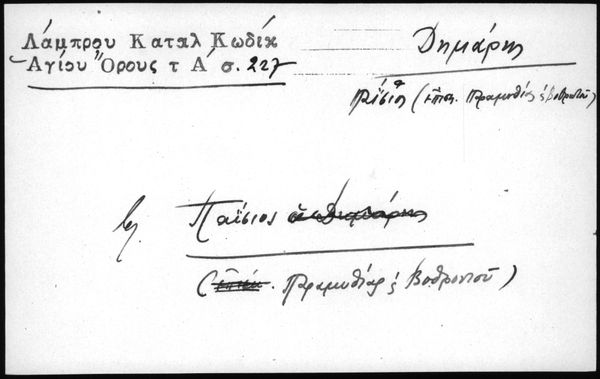 Λάμπρου Καταλ Κωδίκ
Ἁγίου Ὄρους τ Α΄ σ. 227
Δημάρης
Παΐσιος (ἐπισ. Παραμυθίας & Βοθρωτοῦ)
βλ. Παΐσιος
Παραμυθίας & Βοθρωτοῦ)